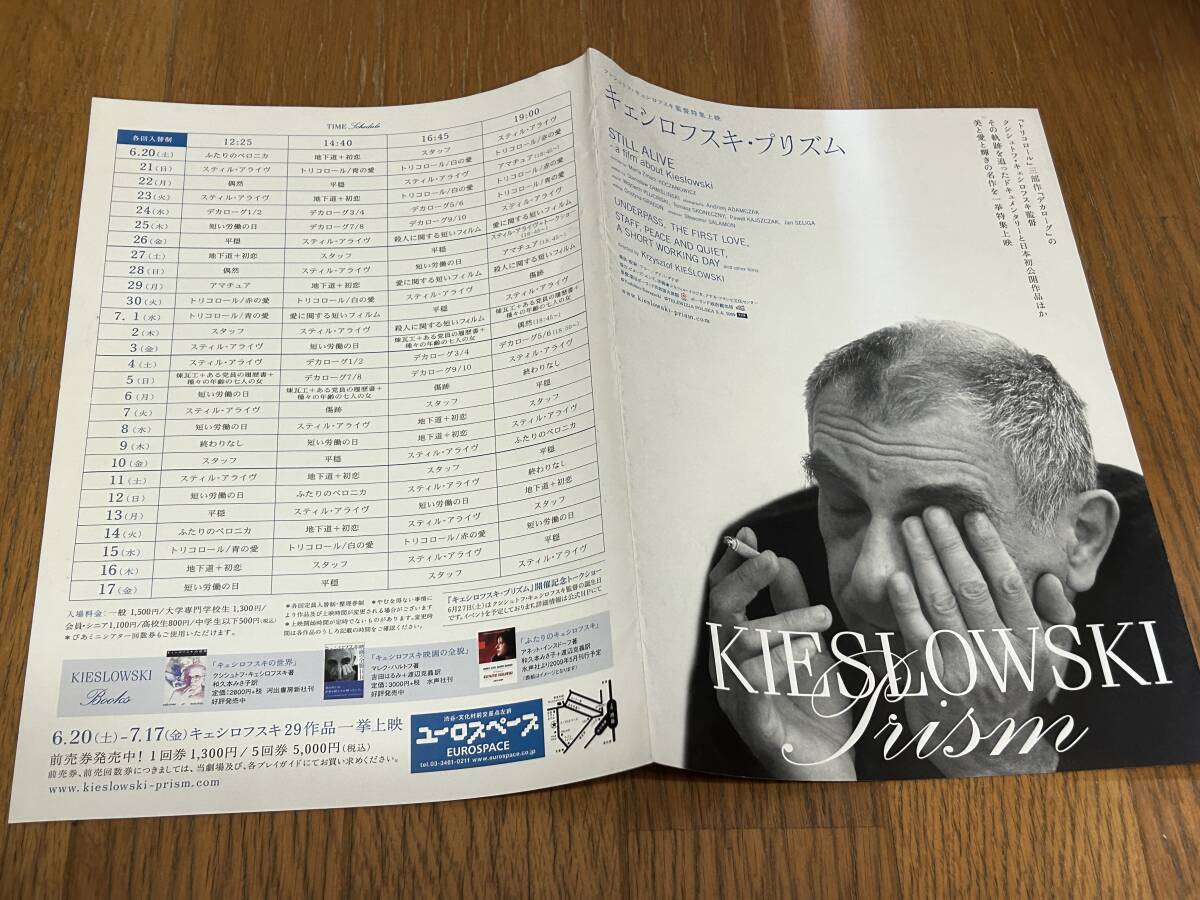 TIME Schedule
各回入替制 12:25 14:40 16:45 19:00
6.20(土) ふたりのベロニカ 地下道+初恋 スタッフ スティル・アライヴ
21(日) スティル・アライヴ トリコロール/青の愛 トリコロール/白の愛 トリコロール/赤の愛
22(月) 偶然 平穏 スティル・アライヴ アマチュア(18:45〜)
23(火) スティル・アライヴ 地下道+初恋 トリコロール/白の愛 トリコロール/赤の愛
24(水) デカローグ1/2 デカローグ3/4 デカローグ5/6 トリコロール/青の愛
25(木) 短い労働の日 デカローグ7/8 デカローグ9/10 スティル・アライヴ
26(金) 平穏 スティル・アライヴ 殺人に関する短いフィルム 愛に関する短いフィルム
27(土) 地下道+初恋 スタッフ 平穏 スティル・アライヴ+トークショー(18:45〜)
28(日) 偶然 スティル・アライヴ 短い労働の日 アマチュア(18:45〜)
29(月) アマチュア 地下道+初恋 愛に関する短いフィルム 殺人に関する短いフィルム
30(火) トリコロール/赤の愛 トリコロール/白の愛 スティル・アライヴ 傷跡
7. 1(水) トリコロール/青の愛 愛に関する短いフィルム 平穏 スティル・アライヴ
2(木) スタッフ スティル・アライヴ 殺人に関する短いフィルム 煉瓦工+ある党員の履歴書+種々の年齢の七人の女
3(金) スティル・アライヴ 短い労働の日 煉瓦工+ある党員の履歴書+種々の年齢の七人の女 偶然(18:45〜)
4(土) スティル・アライヴ デカローグ1/2 デカローグ3/4 デカローグ5/6(18:50〜)
5(日) 煉瓦工+ある党員の履歴書+種々の年齢の七人の女 デカローグ7/8 デカローグ9/10 スティル・アライヴ
6(月) 短い労働の日 煉瓦工+ある党員の履歴書+種々の年齢の七人の女 傷跡 終わりなし
7(火) スティル・アライヴ 傷跡 スタッフ 平穏
8(水) 短い労働の日 スティル・アライヴ 地下道+初恋 スティル・アライヴ
9(木) 終わりなし 短い労働の日 地下道+初恋
10(金) スタッフ 平穏 スティル・アライヴ ふたりのベロニカ
11(土) スティル・アライヴ 地下道+初恋 スタッフ
12(日) 短い労働の日 ふたりのベロニカ スティル・アライヴ 終わりなし
13(月) 平穏 スティル・アライヴ 短い労働の日 地下道+初恋
14(火) ふたりのベロニカ 地下道+初恋 スティル・アライヴ スタッフ
15(水) トリコロール/青の愛 トリコロール/白の愛 トリコロール/赤の愛 短い労働の日
16(木) 地下道+初恋 スタッフ スティル・アライヴ 平穏
17(金) 短い労働の日 平穏 スタッフ スティル・アライヴ
入場料金:一般 1,500円/大学専門学校生 1,300円/
会員・シニア1,100円/高校生800円/中学生以下500円(税込)
*ぴあミニシアター回数券もご使用いただけます。
*各回定員入替制・整理券制 *やむを得ない事情に
より作品及び上映時間が変更される場合がございます
*上映開始時間が定時でないものがあります。変更時
間は各作品のうしろ記載の時間をご確認ください。
「キェシロフスキ・プリズム」開催記念トークショー
6月27日(土)はクシシュトフ・キェシロフスキ監督の誕生日
です。イベントを予定しております。詳細情報は公式HPにて
KIESLOWSKI
Books
「キェシロフスキの世界」
クシシュトフ・キェシロフスキ著
和久本みさ子訳
定価:2800円+税 河出書房新社刊
好評発売中
「キェシロフスキ映画の全貌」
マレク・ハルトフ著
吉田はるみ+渡辺克義訳
定価:3000円+税 水声社刊
好評発売中
「ふたりのキェシロフスキ」
アネット・インスドーフ著
和久本みさ子+渡辺克義訳
水声社より2009年5月刊行予定
(表紙はイメージとなります)
6.20(土)-7.17(金)キェシロフスキ29作品一挙上映
前売券発売中!1回券1,300円/5回券 5,000円(税込)
前売券、前売回数券につきましては、当劇場及び、各プレイガイドにてお買い求めください。
www.kieslowski-prism.com
渋谷・文化村前交差点左折
ユーロスペース
EUROSPACE
tel.03-3461-0211 www.eurospace.co.jp
クシシュトフ・キェシロフスキ監督特集上映
キェシロフスキ・プリズム
STILL ALIVE
a film about Kieslowski
UNDERPASS, THE FIRST LOVE,
STAFF, PEACE AND QUIET,
A SHORT WORKING DAY and other films
directed by Krzysztof KIEŚLOWSKI
www.kieslowski-prism.com
『トリコロール』三部作『デカローグ』の
クシシュトフ・キェシロフスキ監督
その軌跡を追ったドキュメンタリーと日本初公開作品ほか
美と愛と輝きの名作を一挙特集上映
KIESLOWSKI
Prism